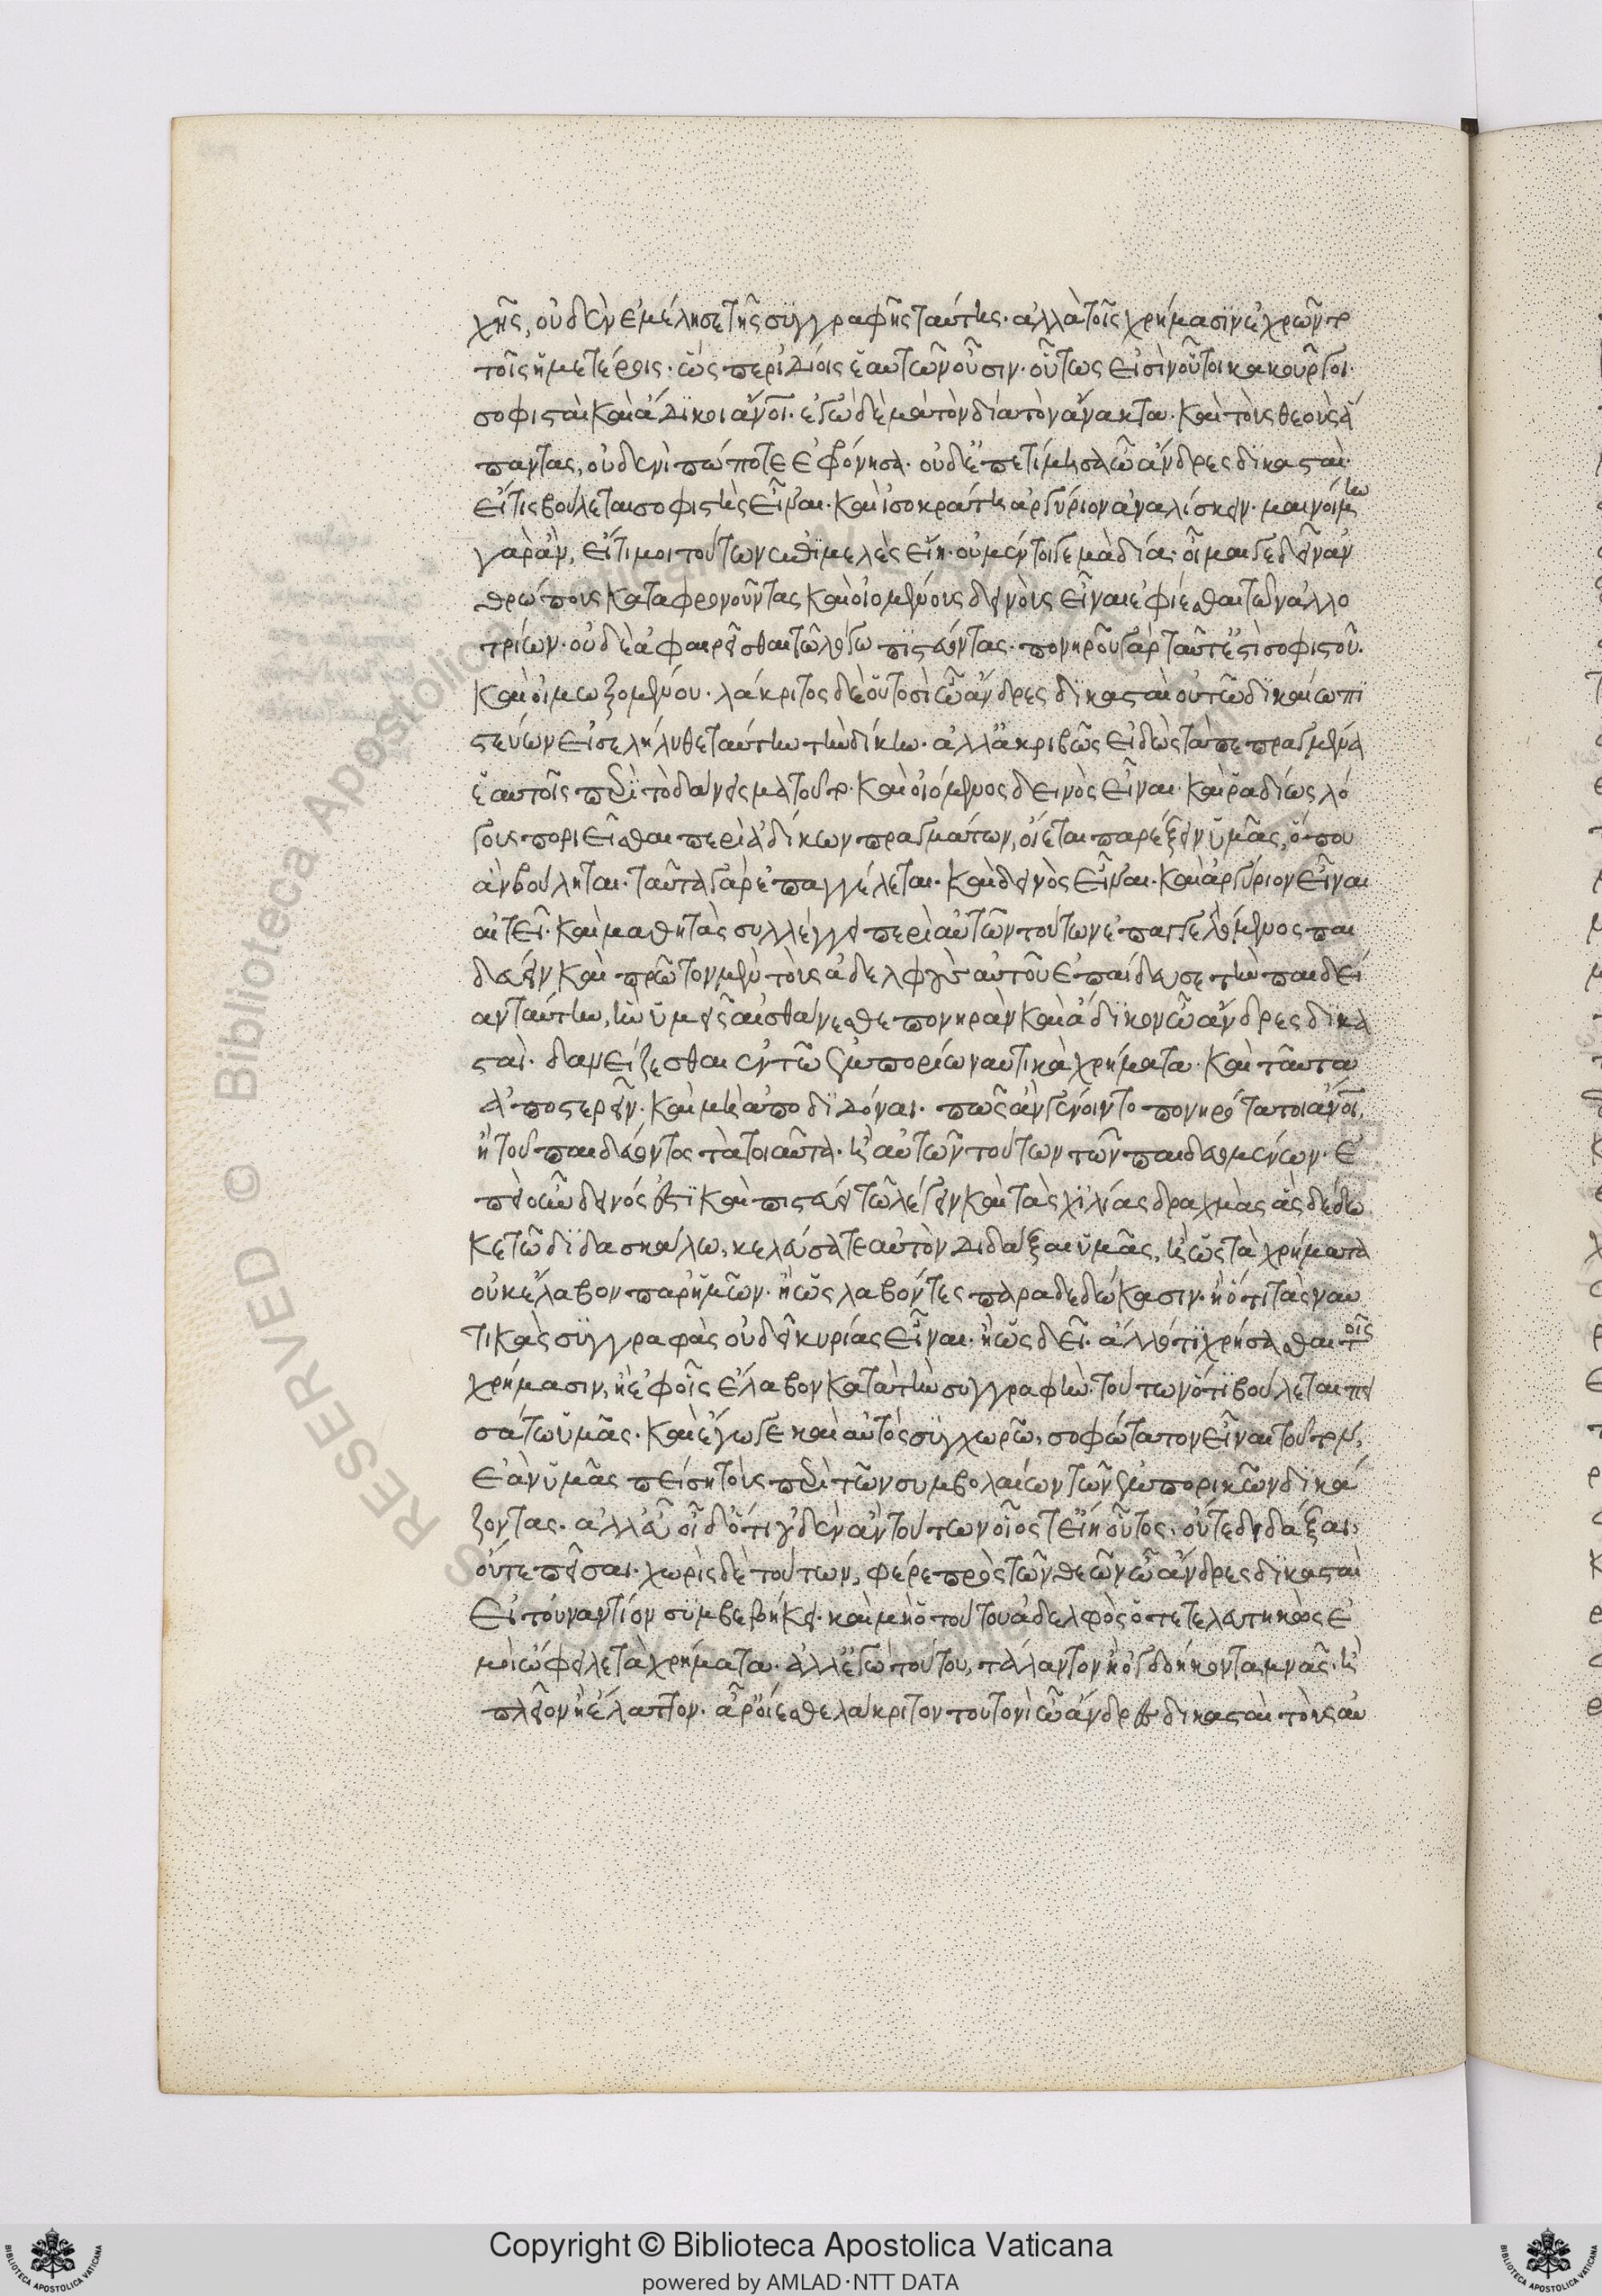 χῆς, οὐδὲν ἐμέλησε τῆς συγγραφῆς ταύτης· ἀλλὰ τοῖς χρήμασιν ἐχρῶντο
τοῖς ἡμετέροις· ὥσπερ ἰδίοις ἑαυτῶν οὖσιν· οὕτως εἰσὶν οὗτοι κακοῦργοι·
σοφισταὶ καὶ ἄδικοι ἄνοι· ἐγὼ δὲ μὰ τὸν δία τὸν ἄνακτα· καὶ τοὺς θεοὺς ἅ
παντας, οὐδενὶ πώποτε ἐφθόνησα· οὐδ' ἐπετίμησα ὦ ἄνδρες δικασταί·
εἴ τις βούλεται σοφιστὴς εἶναι· καὶ ἰσοκράτη ἀργύριον ἀναλίσκειν· μαινοίμην
γὰρ ἄν, εἴ τι μοι τούτων ἐπιμελὲς εἴη· οὐ μέντοι γε μὰ δία· οἶμαι γε δεῖν ἀν
θρώπους καταφρονοῦντας καὶ οἰομένους δεινοὺς εἶναι ἐφίεσθαι τῶν ἀλλο
τρίων· οὐδὲ ἀφαιρεῖσθαι τῷ λόγῳ πιστεύοντας· πονηροῦ γὰρ ταῦτ' ἐστὶ σοφιστοῦ·
καὶ οἰμωξομένου· λάκριτος δὲ οὑτοσὶ ὦ ἄνδρες δικασταὶ οὐ τῷ δικαίῳ πι
στεύων εἰσελήλυθε ταύτην τὴν δίκην· ἀλλ' ἀκριβῶς εἰδὼς τὰ πεπραγμένα
ἑαυτοῖς περὶ τὸ δάνεισμα τοῦτο· καὶ οἰόμενος δεινὸς εἶναι· καὶ ῥαδίως λό
γους ποριεῖσθαι περὶ ἀδίκων πραγμάτων, οἴεται παρέξειν ὑμᾶς, ὅπου
ἂν βούληται· ταῦτα γὰρ ἐπαγγέλεται· καὶ δεινὸς εἶναι· καὶ ἀργύριον εἶναι
αἰτεῖ· καὶ μαθητὰς συλλέγγει περὶ αὐτῶν τούτων ἐπαγγελόμενος παι
δεύειν καὶ πρῶτον μὲν τοὺς ἀδελφοὺς αὐτοῦ ἐπαίδευσε τὴν παιδεί
αν ταύτην, ἣν ὑμεῖς αἰσθάνεσθε πονηρὰν καὶ ἄδικον ὦ ἄνδρες δικα
σταί· δανείζεσθαι ἐν τῷ ἐμπορίῳ ναυτικὰ χρήματα· καὶ ταῦτα
ἀποστερεῖν· καὶ μὴ ἀποδιδόναι· πῶς ἂν γένοιντο πονηρότατοι ἄνοι,
ἢ τοῦ παιδεύοντος τὰ τοιαῦτα· ἢ αὐτῶν τούτων τῶν παιδευομένων· ἐ
πεὶ οὖν δεινός ἐστι καὶ πιστεύει τῷ λέγειν καὶ τὰς χιλίας δραχμὰς ἃς δέδω
κε τῷ διδασκάλῳ, κελεύσατε αὐτὸν διδάξαι ὑμᾶς, ἢ ὡς τὰ χρήματα
οὐκ ἔλαβον παρ' ἡμῶν· ἢ ὡς λαβόντες παραδεδώκασιν· ἢ ὅτι τὰς ναυ
τικὰς συγγραφὰς οὐ δεῖ κυρίας εἶναι· ἢ ὡς δεῖ· ἄλλό τι χρήσασθαι τοῖς
χρήμασιν, ἢ ἐφ' οἷς ἔλαβον κατὰ τὴν συγγραφήν· τούτων ὅτι βούλεται πει
σάτω ὑμᾶς· καὶ ἔγωγε καὶ αὐτὸς συγχωρῶ, σοφώτατον εἶναι τοῦτον,
ἐὰν ὑμᾶς πείσῃ τοὺς περὶ τῶν συμβολαίων τῶν ἐμπορικῶν δικά
ζοντας· ἀλλ' εὖ οἶδ' ὅτι οὐδὲν ἂν τούτων οἷός τ' εἴη οὗτος· οὔτε διδάξαι·
οὔτε πεῖσαι· χωρὶς δὲ τούτων, φέρε πρὸς τῶν θεῶν ὦ ἄνδρες δικασταὶ
εἰ τουναντίον συμβεβήκει· καὶ μὴ ὁ τούτου ἀδελφὸς ὁ τετελευτηκὼς ἐ
μοὶ ὤφειλε τὰ χρήματα· ἀλλ' ἐγὼ τούτου, τάλαντον ἢ ὀγδοήκοντα μνᾶς· ἢ
πλεῖον ἢ ἔλαττον· ἆρ' οἴεσθε λάκριτον τουτονὶ ὦ ἄνδρες δικασταὶ τοὺς αὐ